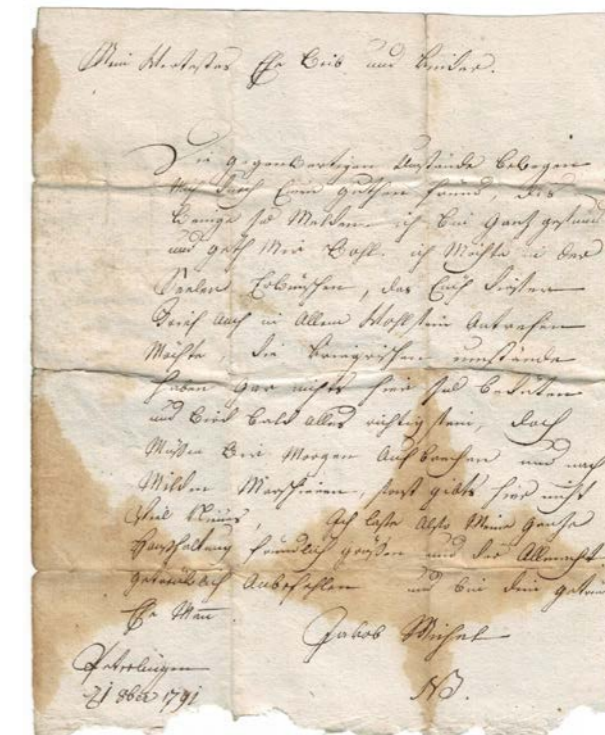 Mein Wertestes Ehe Weib und Kinder.
Die gegenwertigen Umstände bewegen
Mich durch Einen guthen freünd, das
Wenige zu Melden ich bin Gantz gesund
und geth Mir Wohl. ich Möchte in der
Seelen Erwünschen, das Eüch dieser
Brief auch in Allem Wohlsein Antrefen
Möchte, die kriegrischen umstände
haben gar nichts hier zu bedeüten
und wird bald alles richtig sein, doch
Müßen wir Morgen Aufbrechen und nach
Milden Marschieren, sonst gibts hier nicht
Viel Neües, Ich lasse Also Meine Gantze
Haushaltung freündlich grüßen und der Allmacht
getreülich Anbefehlen und bin dein getreü
Ehe Man
Jakob Michel
Peterlingen
21 8ber 1791
NB.